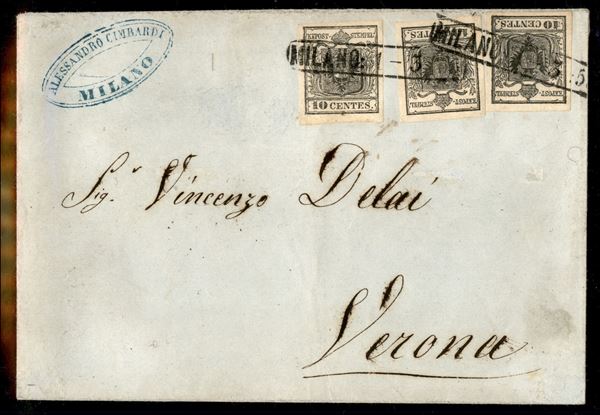 ALESSANDRO CIMBARDI
MILANO
KKPOST-STEMPEL
10 CENTES.
KKPOST-STEMPEL
10 CENTES.
MILANO
3
MILANO
3
5
Sig.r Vincenzo Delai
Verona